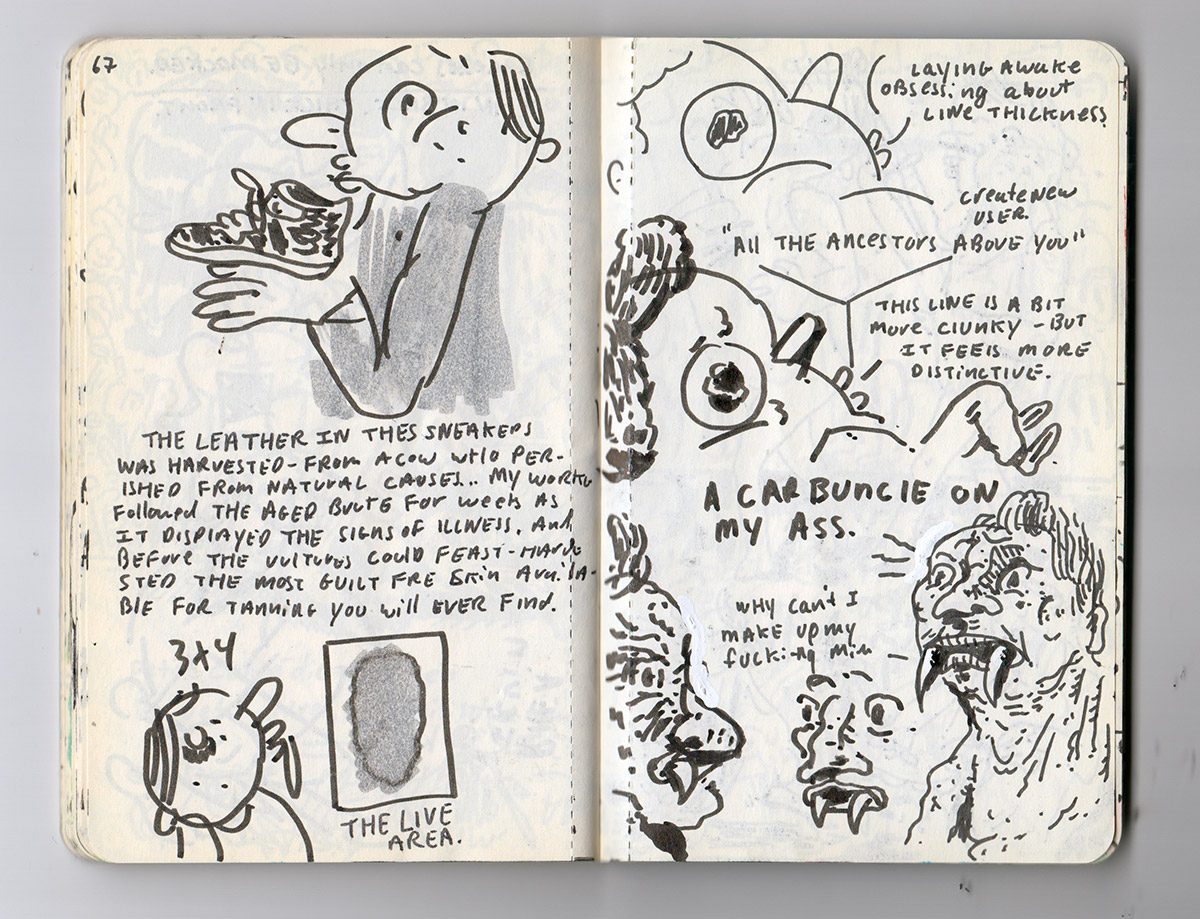 67
THE LEATHER IN THES SNEAKERS
WAS HARVESTED - FROM A COW WHO PER-
ISHED FROM NATURAL CAUSES.. MY WORK
FOLLOWED THE AGED BRUTE FOR WEEKS AS
IT DISPLAYED THE SIGNS OF ILLNESS. AND
BEFORE THE VULTURES COULD FEAST - HARVE
STED THE MOST GUILT FRE SKIN AVAILA-
BLE FOR TANNING YOU WILL EVER FIND.
3x4
THE LIVE
AREA.
LAYING AWAKE
OBSESSING ABOUT
LINE THICKNESS
CREATE NEW
USER.
"ALL THE ANCESTORS ABOVE YOU"
THIS LINE IS A BIT
MORE CLUNKY - BUT
IT FEELS MORE
DISTINCTIVE.
A CARBUNCLE ON
MY ASS.
WHY CAN'T I
MAKE UP MY
FUCKING MIN